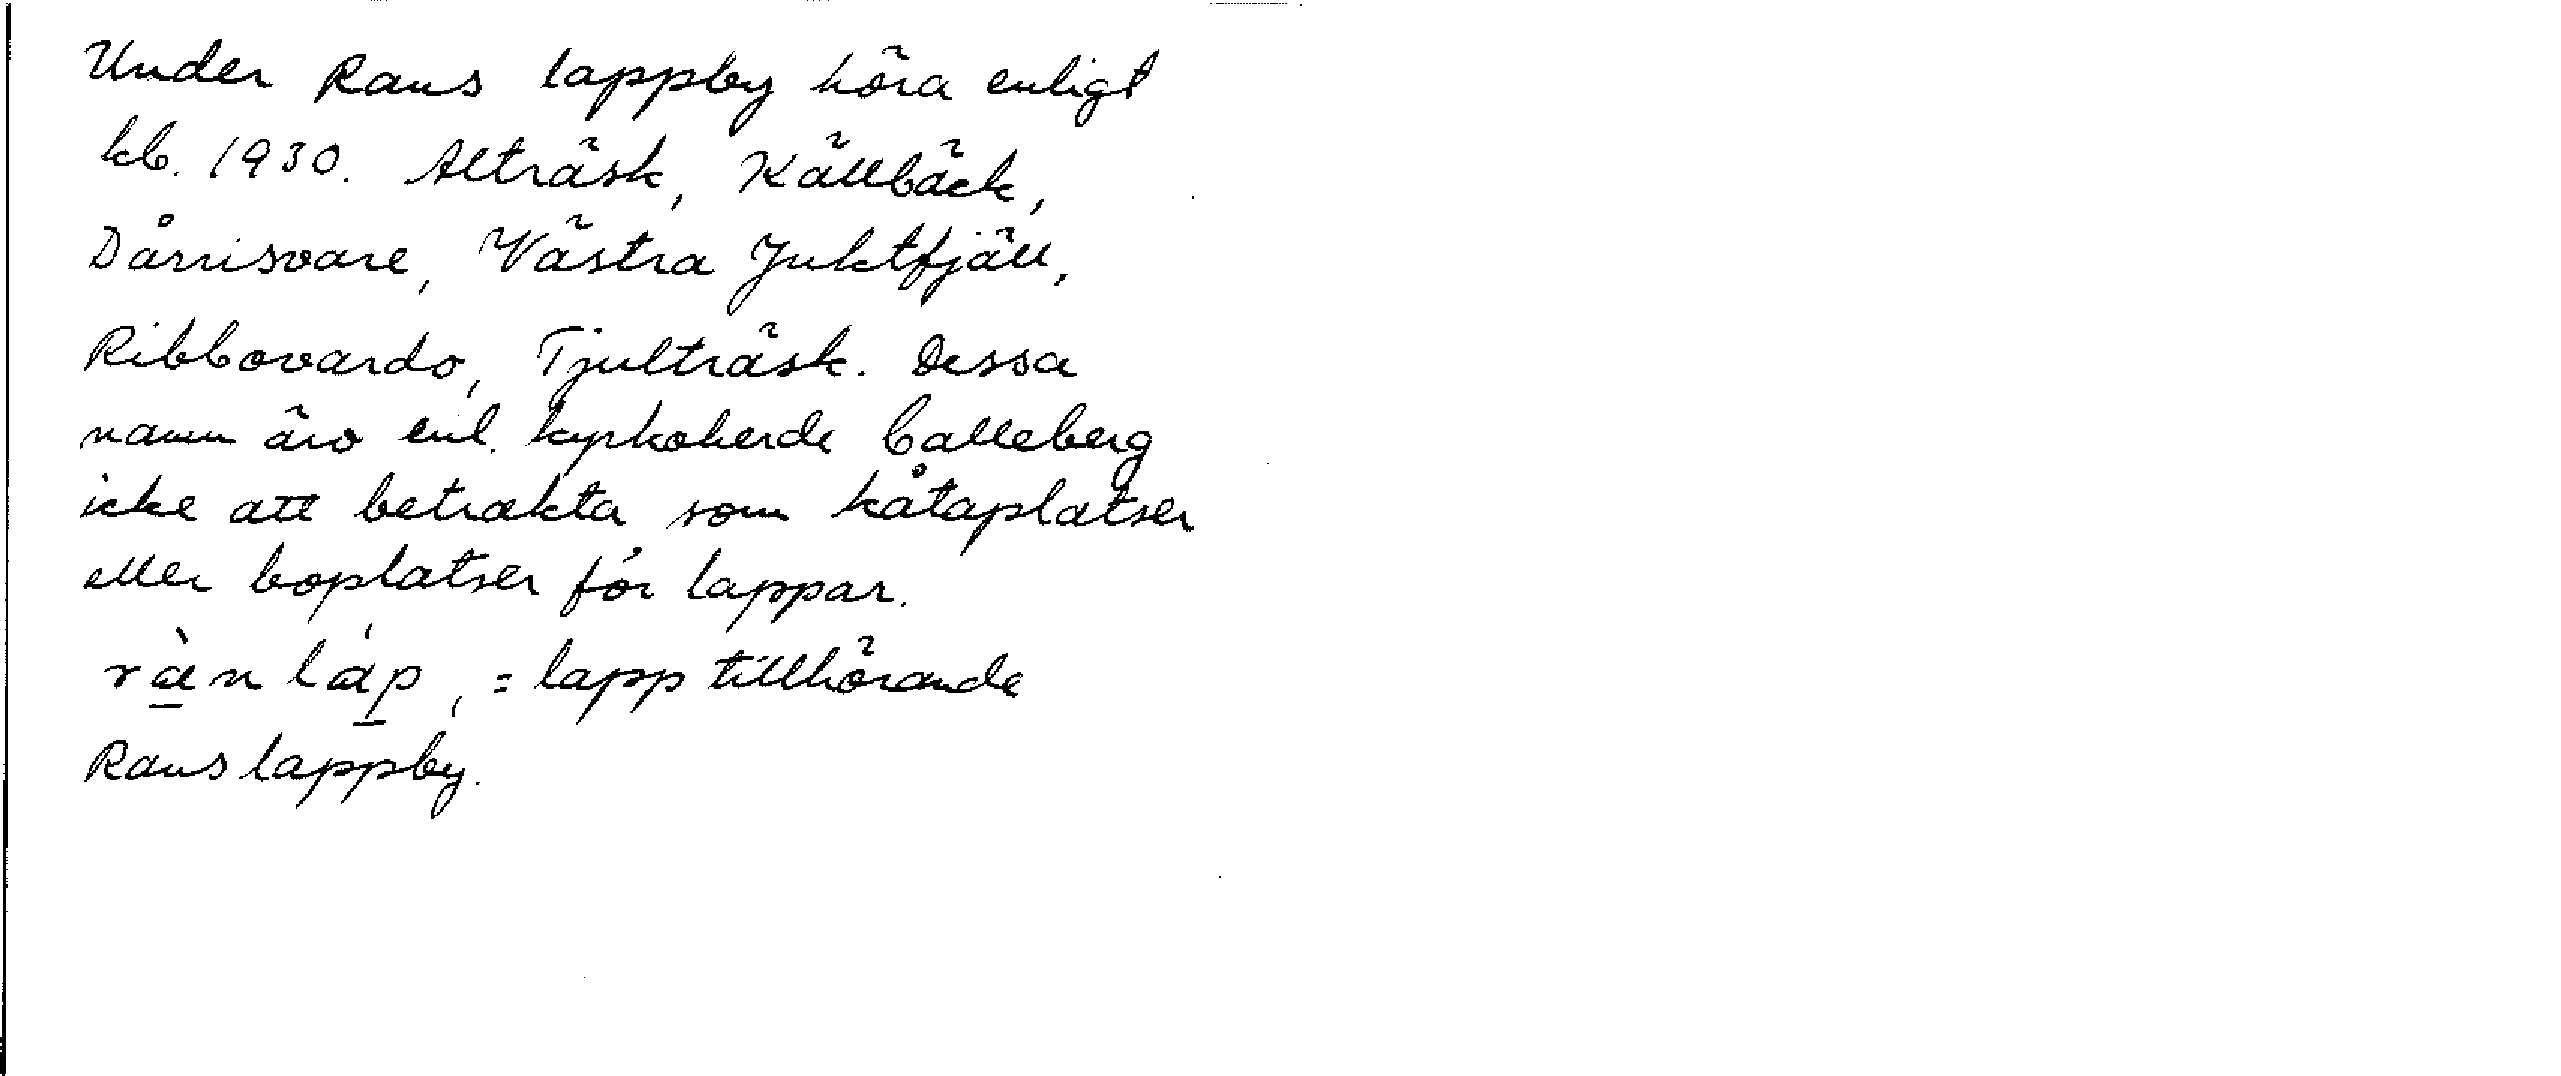 Under Rans lappby höra enligt
kb. 1930. Alträsk, Källbäck,
Dårrisvare, Västra Juktfjäll,
Ribbovardo, Tjulträsk. Dessa
namn äro enl. kyrkoherde Calleberg
icke att betrakta som kåtaplatser
eller boplatser för lappar.
ràn láp, = lapp tillhörande
Rans lappby.